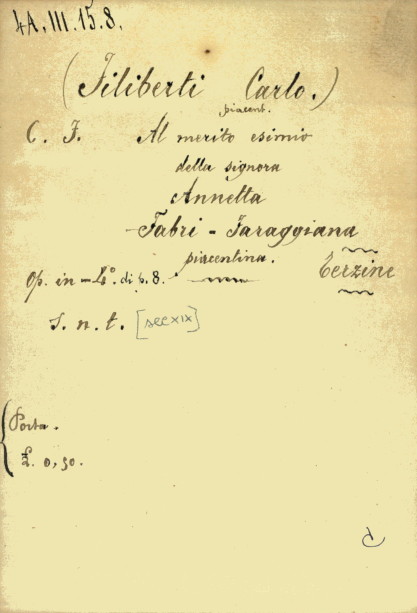 4A.III.15.8.
(Filiberti Carlo.)
piacent.
C. F. Al merito esimio
della signora
Annetta
Fabri - Faraggiana
piacentina.
Terzine
Op. in - 4º. di p. 8.
S. n. t. [sec XIX]
Porta.
£. 0,50.